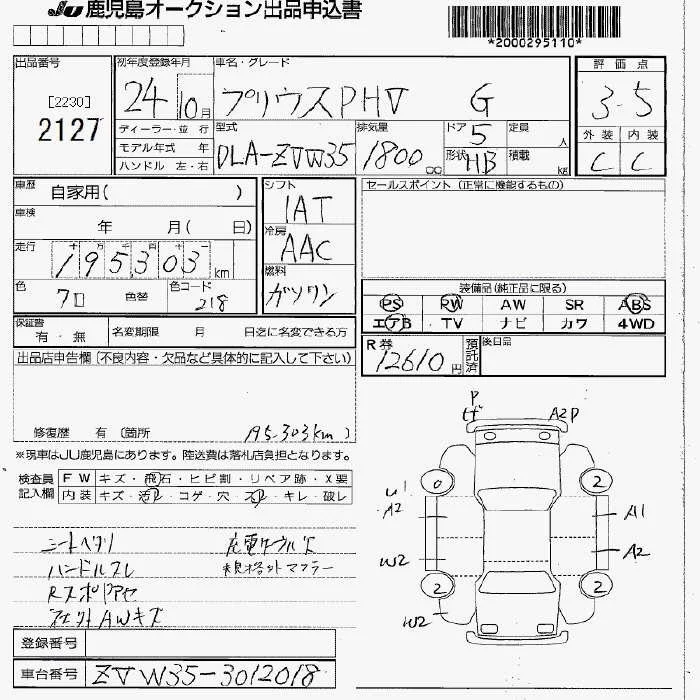 JU 鹿児島オークション出品申込書
*2000295110*
出品番号
[2230]
2127
初年度登録年月
24 10月
車名・グレード
プリウスPHV G
評価点
3.5
外装 内装
C C
ディーラー・並行
モデル年式 年
ハンドル 左・右
型式
DLA-ZVW35
排気量
1800 cc
ドア 5
形状 HB
定員 人
積載 kg
車歴 自家用( )
車検 年 月( 日)
走行 十 万 千 百 十 一
195303 km
色 クロ 色替
色コード 218
シフト
IAT
冷房
AAC
燃料
ガソリン
セールスポイント(正常に機能するもの)
装備品(純正品に限る)
PS PW AW SR ABS
エアB TV ナビ カワ 4WD
保証書 有・無
名変期限 月 日迄に名変できる方
R券
12610円
預託済
後日品
出品店申告欄(不良内容・欠品など具体的に記入して下さい)
修復歴 有 (箇所 195.303km)
※現車はJU鹿児島にあります。陸送費は落札店負担となります。
検査員記入欄
FW キズ・飛石・ヒビ割・リペア跡・X要
内装 キズ・汚レ・コゲ・穴・スレ・キレ・破レ
シートヘタリ
ハンドルスレ
RスポDアセ
AWキズ
充電ケーブル欠
規格外マフラー
P
A2P
0 2
U1
A2
A1
W2
A2
2 2
W2
登録番号
車台番号 ZVW35-3012018